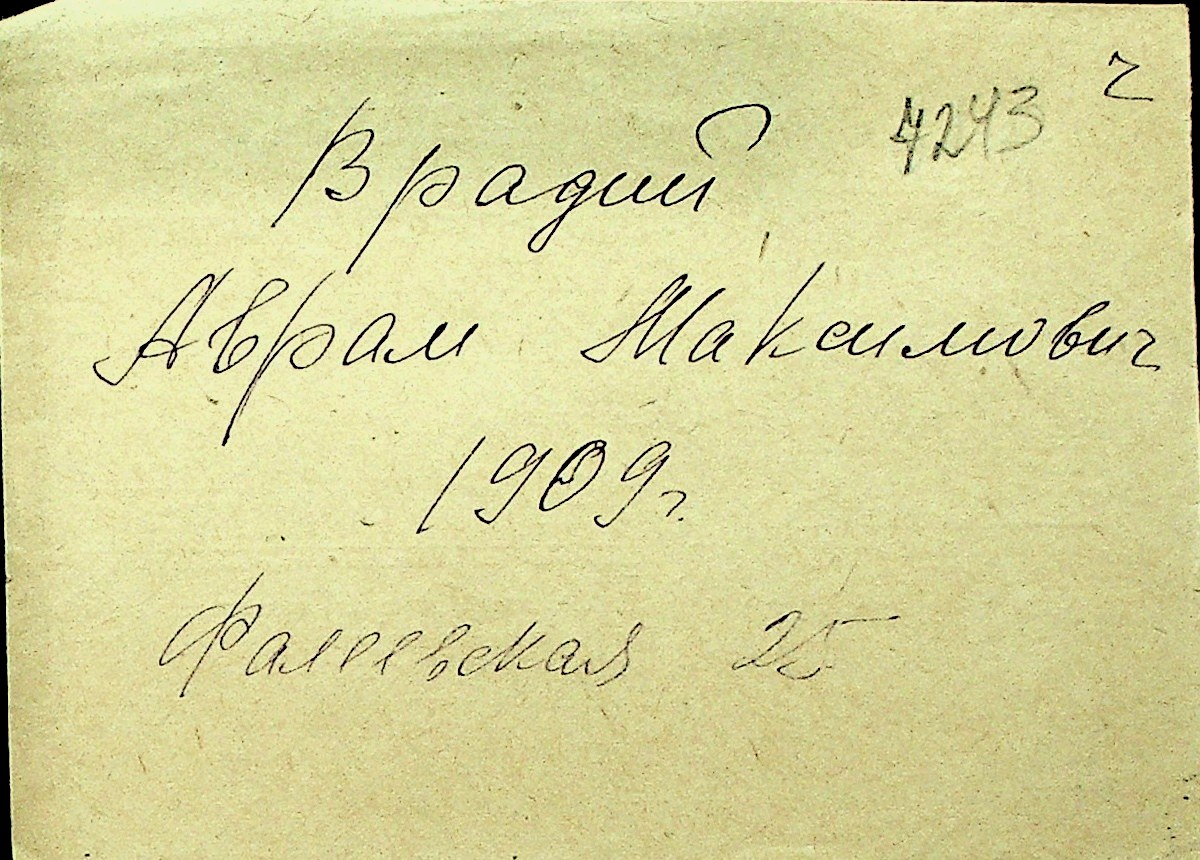 ч
4243
Врадий
Аврам Максимович
1909 г.
Фалеевская 25